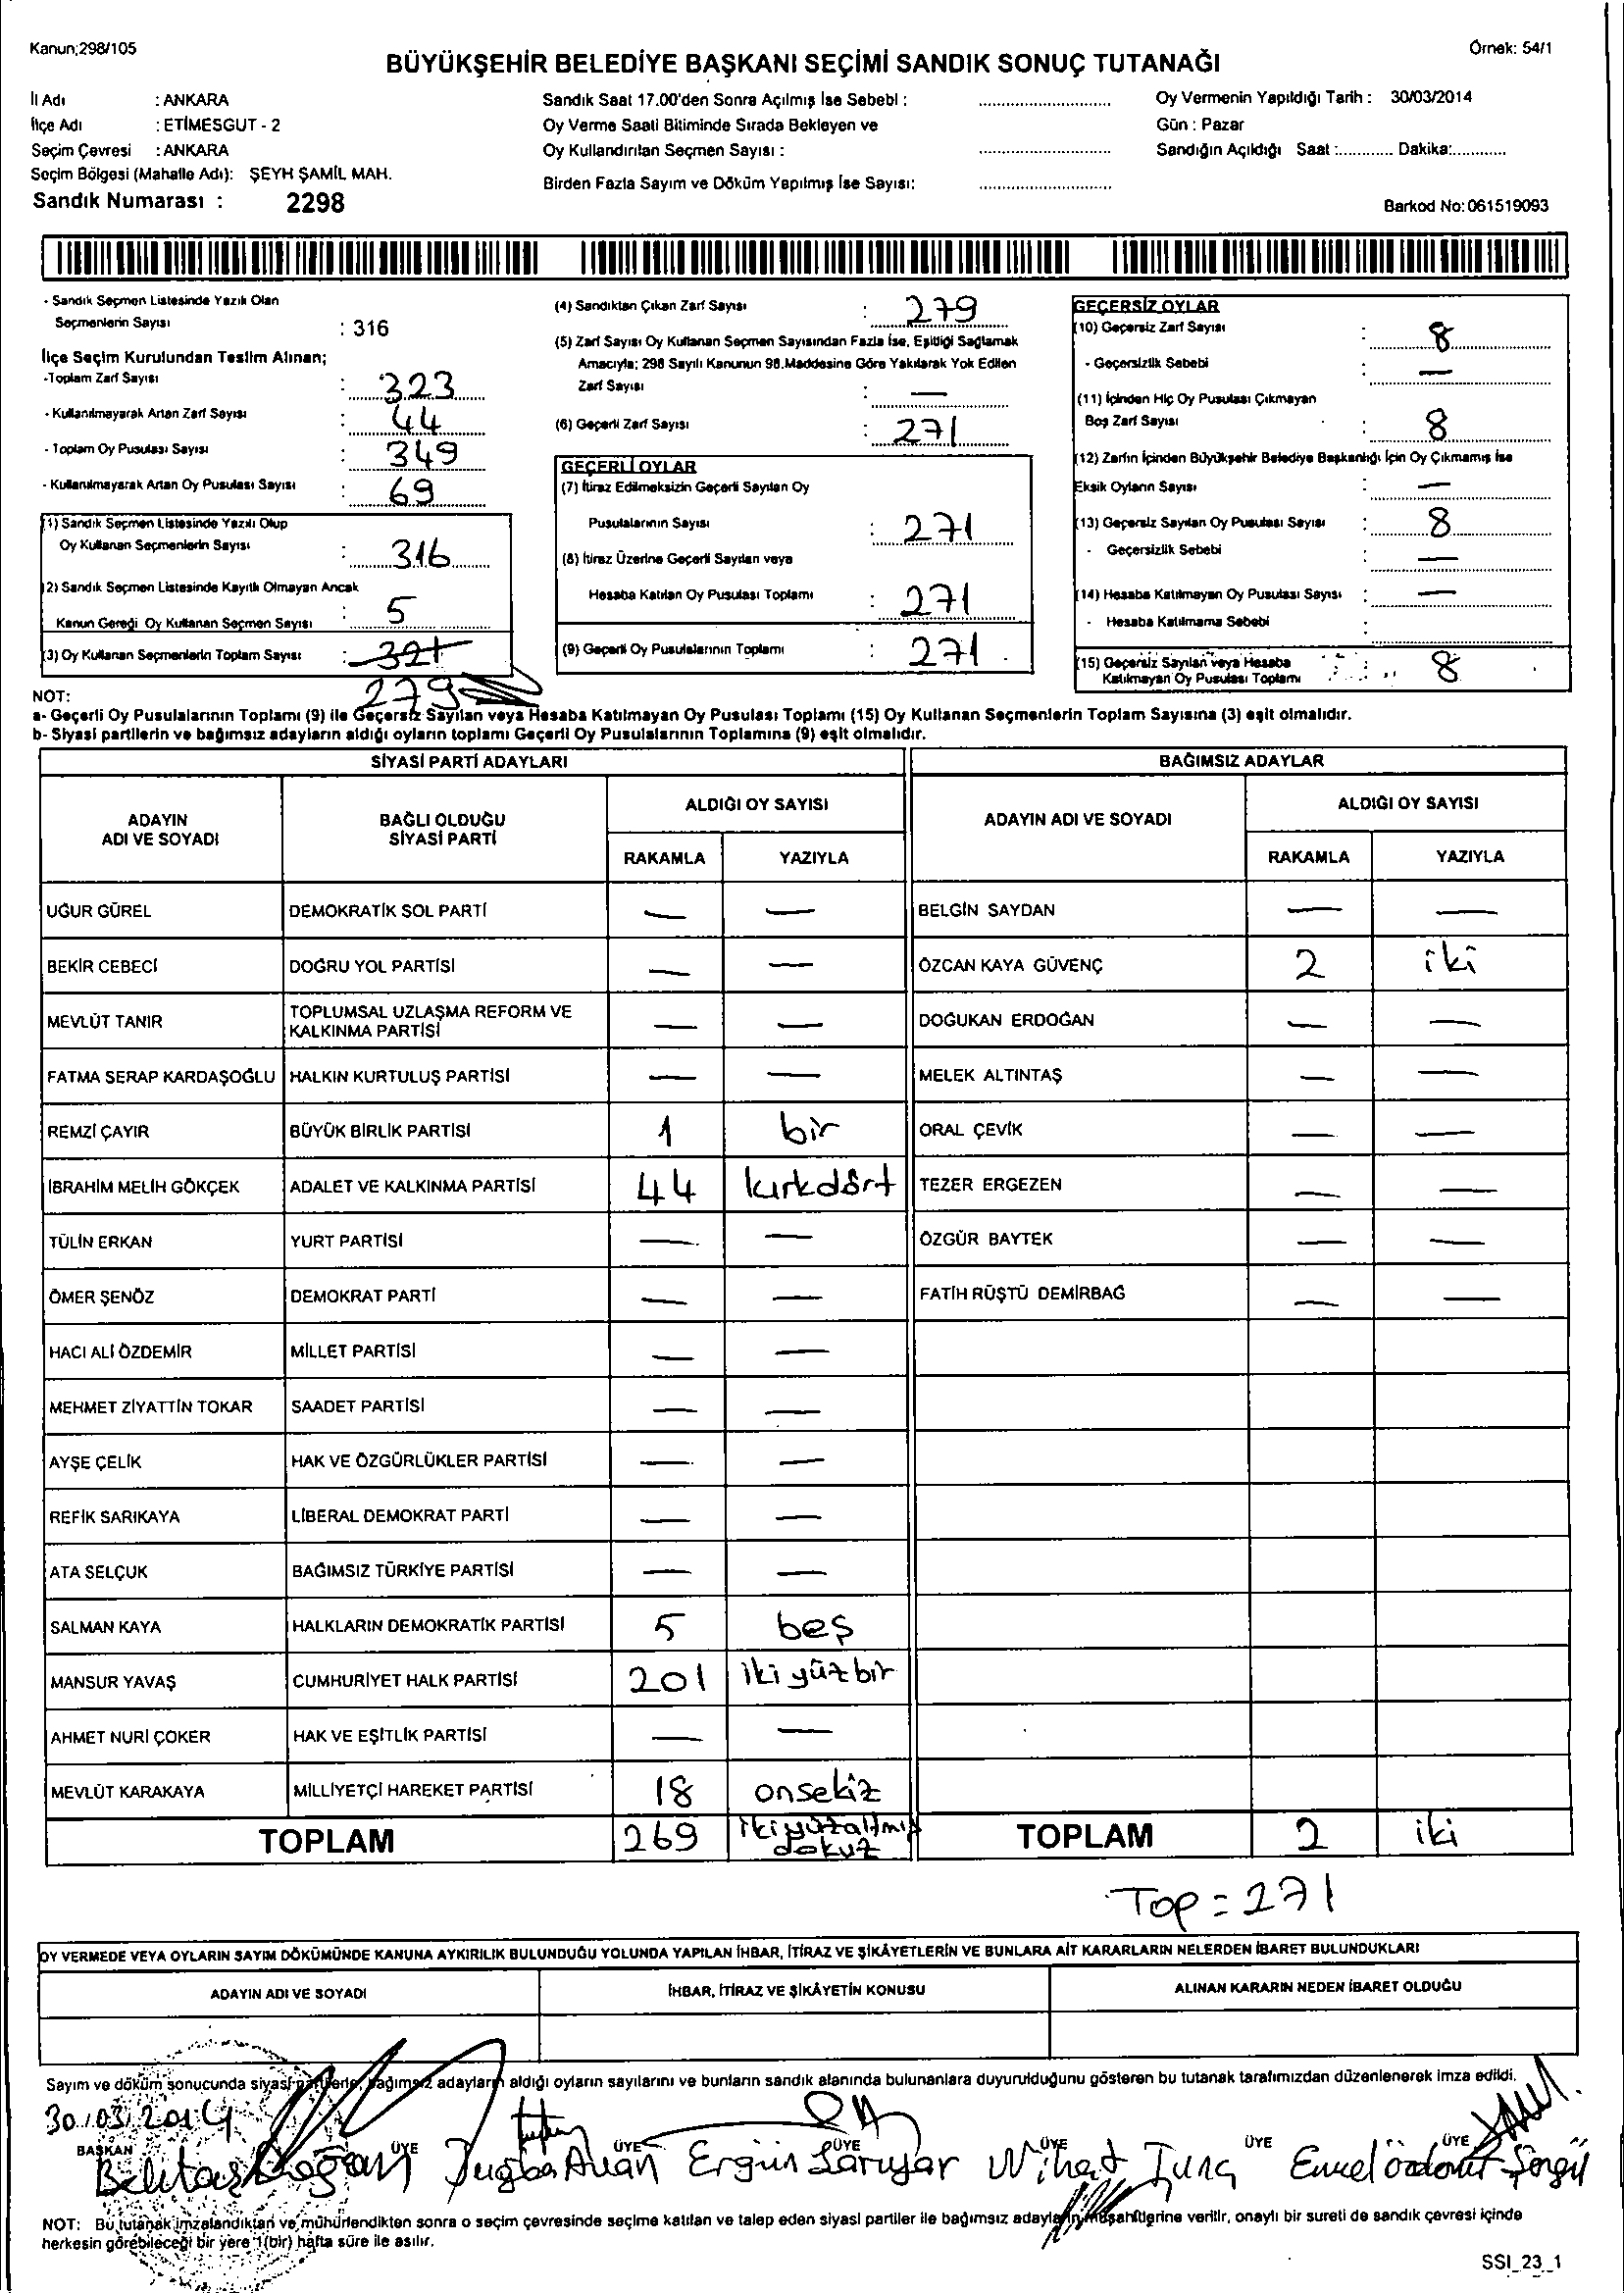 Kanun;298/105
Örnek: 54/1
BÜYÜKŞEHİR BELEDİYE BAŞKANI SEÇİMİ SANDIK SONUÇ TUTANAĞI
İl Adı : ANKARA
İlçe Adı : ETİMESGUT - 2
Seçim Çevresi : ANKARA
Seçim Bölgesi (Mahalle Adı): ŞEYH ŞAMİL MAH.
Sandık Numarası : 2298
Sandık Saat 17.00'den Sonra Açılmış İse Sebebi :
Oy Verme Saati Bitiminde Sırada Bekleyen ve
Oy Kullandırılan Seçmen Sayısı :
Birden Fazla Sayım ve Döküm Yapılmış İse Sayısı:
Oy Vermenin Yapıldığı Tarih : 30/03/2014
Gün : Pazar
Sandığın Açıldığı Saat :............ Dakika:............
Barkod No:061519093
- Sandık Seçmen Listesinde Yazılı Olan
Seçmenlerin Sayısı : 316
İlçe Seçim Kurulundan Teslim Alınan;
-Toplam Zarf Sayısı : 323
- Kullanılmayarak Artan Zarf Sayısı : 44
- Toplam Oy Pusulası Sayısı : 349
- Kullanılmayarak Artan Oy Pusulası Sayısı : 69
(1) Sandık Seçmen Listesinde Yazılı Olup
Oy Kullanan Seçmenlerin Sayısı : 316
(2) Sandık Seçmen Listesinde Kayıtlı Olmayan Ancak
Kanun Gereği Oy Kullanan Seçmen Sayısı : 5
(3) Oy Kullanan Seçmenlerin Toplam Sayısı : 321
279
(4) Sandıktan Çıkan Zarf Sayısı : 279
(5) Zarf Sayısı Oy Kullanan Seçmen Sayısından Fazla İse, Eşitliği Sağlamak
Amacıyla; 298 Sayılı Kanunun 98.Maddesine Göre Yakılarak Yok Edilen
Zarf Sayısı : —
(6) Geçerli Zarf Sayısı : 271
GEÇERLİ OYLAR
(7) İtiraz Edilmeksizin Geçerli Sayılan Oy
Pusulalarının Sayısı : 271
(8) İtiraz Üzerine Geçerli Sayılan veya
Hesaba Katılan Oy Pusulası Toplamı : 271
(9) Geçerli Oy Pusulalarının Toplamı : 271
GEÇERSİZ OYLAR
(10) Geçersiz Zarf Sayısı : 8
- Geçersizlik Sebebi : —
(11) İçinden Hiç Oy Pusulası Çıkmayan
Boş Zarf Sayısı : 8
(12) Zarfın İçinden Büyükşehir Belediye Başkanlığı İçin Oy Çıkmamış İse
Eksik Oyların Sayısı : —
(13) Geçersiz Sayılan Oy Pusulası Sayısı : 8
- Geçersizlik Sebebi : —
(14) Hesaba Katılmayan Oy Pusulası Sayısı : —
- Hesaba Katılmama Sebebi :
(15) Geçersiz Sayılan veya Hesaba
Katılmayan Oy Pusulası Toplamı : 8
NOT:
a- Geçerli Oy Pusulalarının Toplamı (9) ile Geçersiz Sayılan veya Hesaba Katılmayan Oy Pusulası Toplamı (15) Oy Kullanan Seçmenlerin Toplam Sayısına (3) eşit olmalıdır.
b- Siyasi partilerin ve bağımsız adayların aldığı oyların toplamı Geçerli Oy Pusulalarının Toplamına (9) eşit olmalıdır.
SİYASİ PARTİ ADAYLARI
BAĞIMSIZ ADAYLAR
ADAYIN ADI VE SOYADI
BAĞLI OLDUĞU SİYASİ PARTİ
ALDIĞI OY SAYISI
RAKAMLA YAZIYLA
ADAYIN ADI VE SOYADI
ALDIĞI OY SAYISI
RAKAMLA YAZIYLA
UĞUR GÜREL DEMOKRATİK SOL PARTİ — — BELGİN SAYDAN — —
BEKİR CEBECİ DOĞRU YOL PARTİSİ — — ÖZCAN KAYA GÜVENÇ 2 iki
MEVLÜT TANIR TOPLUMSAL UZLAŞMA REFORM VE KALKINMA PARTİSİ — — DOĞUKAN ERDOĞAN — —
FATMA SERAP KARDAŞOĞLU HALKIN KURTULUŞ PARTİSİ — — MELEK ALTINTAŞ — —
REMZİ ÇAYIR BÜYÜK BİRLİK PARTİSİ 1 bir ORAL ÇEVİK — —
İBRAHİM MELİH GÖKÇEK ADALET VE KALKINMA PARTİSİ 44 kırkdört TEZER ERGEZEN — —
TÜLİN ERKAN YURT PARTİSİ — — ÖZGÜR BAYTEK — —
ÖMER ŞENÖZ DEMOKRAT PARTİ — — FATİH RÜŞTÜ DEMİRBAĞ — —
HACI ALİ ÖZDEMİR MİLLET PARTİSİ — —
MEHMET ZİYATTİN TOKAR SAADET PARTİSİ — —
AYŞE ÇELİK HAK VE ÖZGÜRLÜKLER PARTİSİ — —
REFİK SARIKAYA LİBERAL DEMOKRAT PARTİ — —
ATA SELÇUK BAĞIMSIZ TÜRKİYE PARTİSİ — —
SALMAN KAYA HALKLARIN DEMOKRATİK PARTİSİ 5 beş
MANSUR YAVAŞ CUMHURİYET HALK PARTİSİ 201 iki yüz bir
AHMET NURİ ÇOKER HAK VE EŞİTLİK PARTİSİ — —
MEVLÜT KARAKAYA MİLLİYETÇİ HAREKET PARTİSİ 18 onsekiz
TOPLAM 269 ikiyüzaltmış dokuz TOPLAM 2 iki
Top = 271
OY VERMEDE VEYA OYLARIN SAYIM DÖKÜMÜNDE KANUNA AYKIRILIK BULUNDUĞU YOLUNDA YAPILAN İHBAR, İTİRAZ VE ŞİKÂYETLERİN VE BUNLARA AİT KARARLARIN NELERDEN İBARET BULUNDUKLARI
ADAYIN ADI VE SOYADI İHBAR, İTİRAZ VE ŞİKÂYETİN KONUSU ALINAN KARARIN NEDEN İBARET OLDUĞU
Sayım ve döküm sonucunda siyasi partilerle, bağımsız adayların aldığı oyların sayılarını ve bunların sandık alanında bulunanlara duyurulduğunu gösteren bu tutanak tarafımızdan düzenlenerek imza edildi.
30/03/2014
BAŞKAN ÜYE ÜYE ÜYE ÜYE ÜYE ÜYE
Doğan Ergün Sarıyar Nihat Tunç
NOT: Bu tutanak imzalandıktan ve mühürlendikten sonra o seçim çevresinde seçime katılan ve talep eden siyasi partiler ile bağımsız adayların müşahitlerine verilir, onaylı bir sureti de sandık çevresi içinde
herkesin görebileceği bir yere 1(bir) hafta süre ile asılır.
SSI_23_1